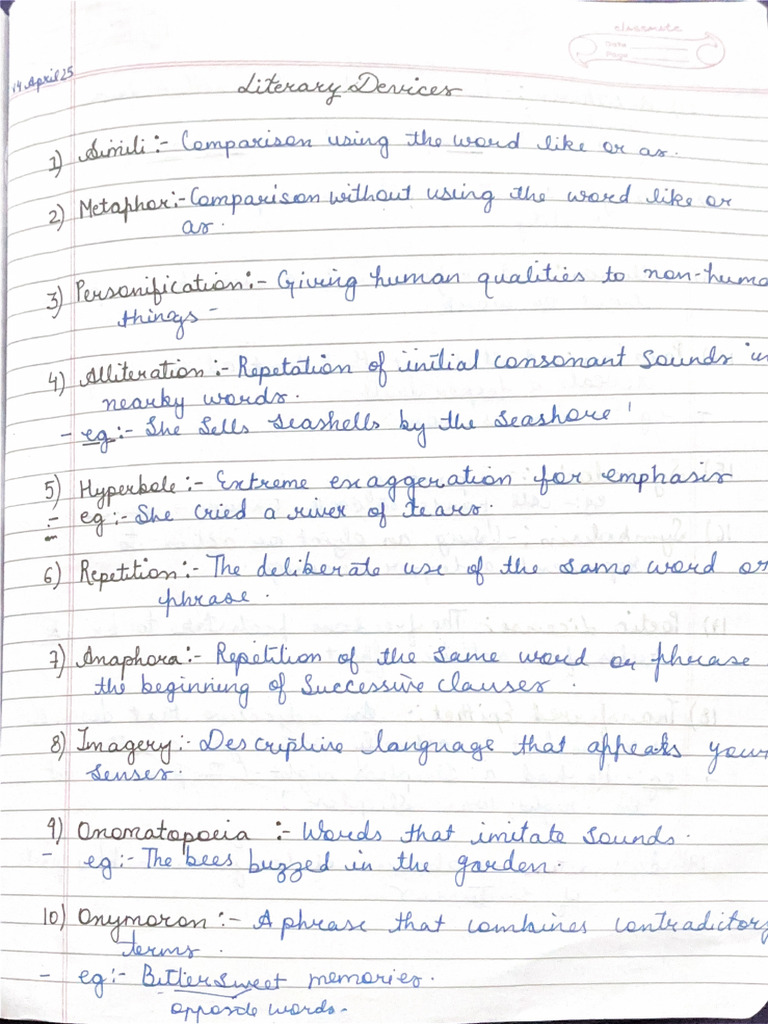 classmate
Date
Page
14 April 25
Literary Devices
1) Simili :- Comparison using the word like or as.
2) Metaphor:- Comparison without using the word like or
as.
3) Personification:- Giving human qualities to non-huma
things -
4) Alliteration :- Repetation of initial consonant sounds in
nearky words.
- eg:- She Sells seashells by the seashore '
5) Hyperbole :- Extreme exaggeration for emphasis
:- eg:- She cried a river of tears.
6) Repetition:- The deliberate use of the same word or
phrase.
7) Anaphora:- Repetition of the same word or phrase
the beginning of Successive clauses.
8) Imagery:- Descriptive language that appeals your
senses.
9) Onomatopoeia :- Words that imitate sounds.
- eg:- The bees buzzed in the garden.
10) Onymoron:- A phrase that combines contradictory
terms.
- eg:- Bittersweet memories.
opposite words.